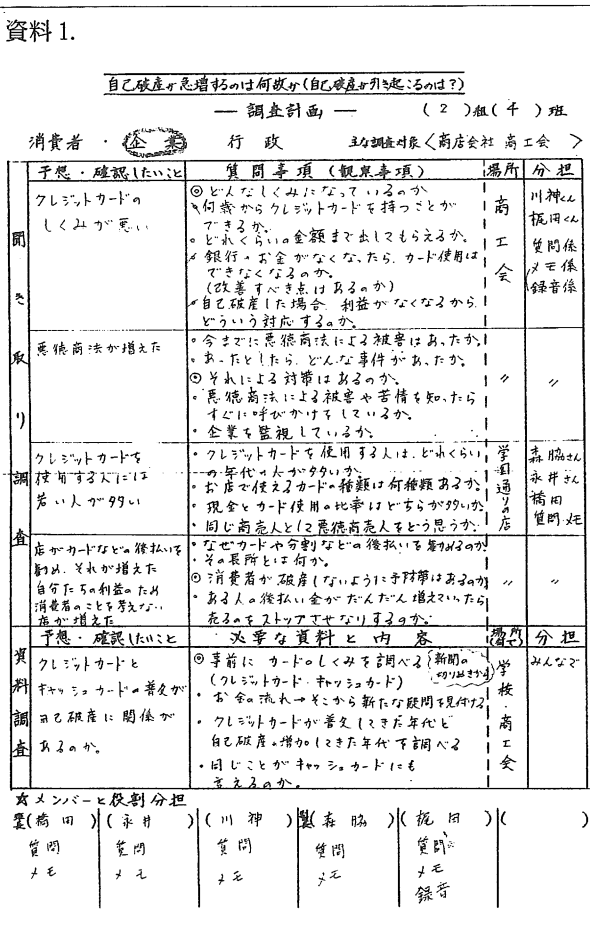 資料1.
自己破産が急増するのは何故か(自己破産が引き起こるのは?)
― 調査計画 ―
(2)組(4)班
消費者・企業 行政 主な調査対象〈商店会社 商工会〉
予想・確認したいこと 質問事項(観点事項) 場所 分担
聞き取り調査
クレジットカードの
しくみが悪い
◎どんなしくみになっているのか
・何歳からクレジットカードを持つことが
できるか。
・どれくらいの金額まで出してもらえるか。
・銀行のお金がなくなったら、カード使用は
できなくなるのか。
(改善すべき点はあるのか)
・自己破産した場合、利益がなくなるから
どういう対応するのか。
商工会
川神くん
梶田くん
質問係
メモ係
録音係
悪徳商法が増えた
・今までに悪徳商法による被害はあったか。
・あったとしたら、どんな事件があったか。
◎それによる対帯はあるのか。
・悪徳商法による被害や苦情を知ったら
すぐに呼びかけをしているか。
・企業を監視しているか。
〃 〃
クレジットカードを
使用する人には
若い人が多い
・クレジットカードを使用する人は、どれくらい
の年代の人が多いか。
・お店で使えるカードの種類は何種類あるか。
・現金とカード使用の比率はどちらが多いか。
・同じ商売人として悪徳商売人をどう思うか。
学園通りの店
森脇さん
永井さん
橋田
質問 メモ
店がカードなどの後払いを
勧め、それが増えた
自分たちの利益のため
消費者のことを考えない
店が増えた
・なぜカードや分割などの後払いを勧めるのか
・その長所とは何か。
◎消費者が破産しないように予防帯はあるのか
・ある人の後払い金がだんだん増えていったら
売るのをストップさせたりするのか。
〃 〃
予想・確認したいこと 必要な資料と内容 場所 分担
資料調査
クレジットカードと
キャッシュカードの普及が
自己破産に関係が
あるのか。
◎事前にカードのしくみを調べる
(クレジットカード・キャッシュカード)
新聞の
切りぬきから
・お金の流れ→そこから新たな疑問を見付ける
・クレジットカードが普及してきた年代と
自己破産の増加してきた年代を調べる
・同じことがキャッシュカードにも
言えるのか。
学校・商工会
みんなで
☆メンバーと役割分担
(橋田) (永井) (川神) (森脇) (梶田) ( )
質問 質問 質問 質問 質問
メモ メモ メモ メモ メモ
録音